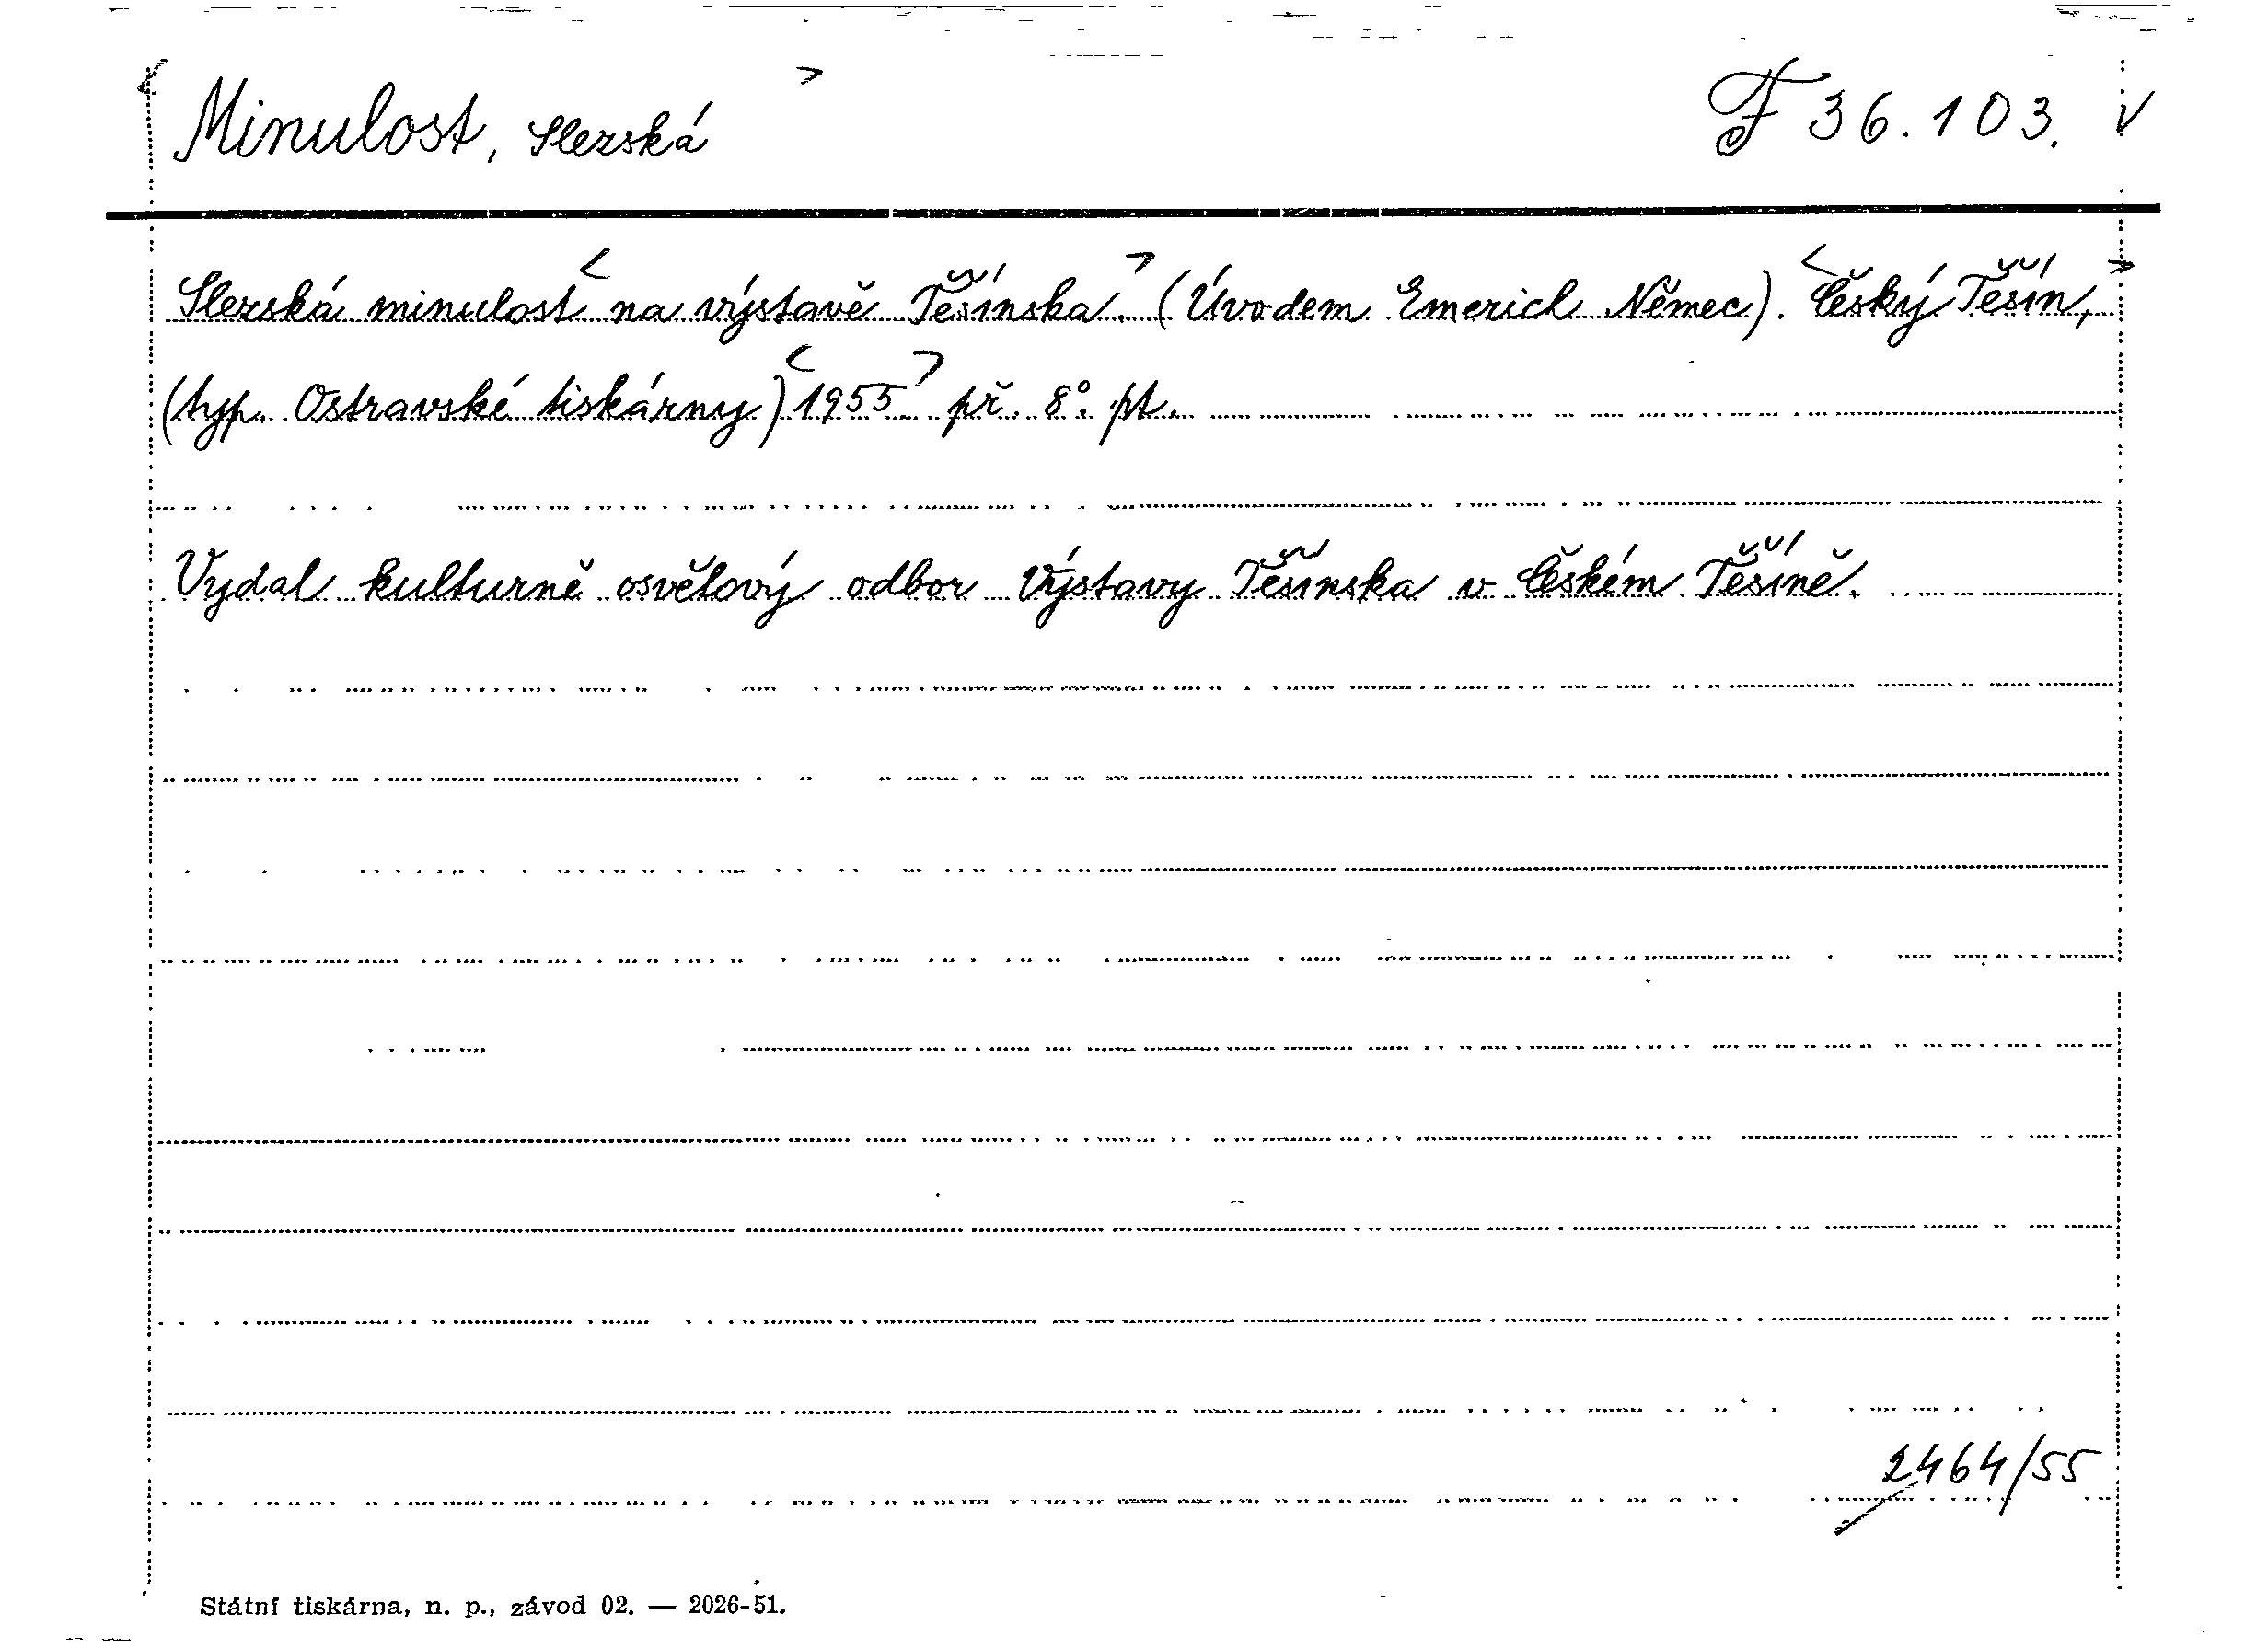 < Minulost, Slezská > F 36.103. V
Slezská minulost < na výstavě Těšínska. > (Úvodem Emerich Němec). < Český Těšín, >
(typ. Ostravské tiskárny) < 1955 > př. 8°. pt.
Vydal kulturně osvětový odbor Výstavy Těšínska v Českém Těšíně.
2464/55
Státní tiskárna, n. p., závod 02. — 2026-51.